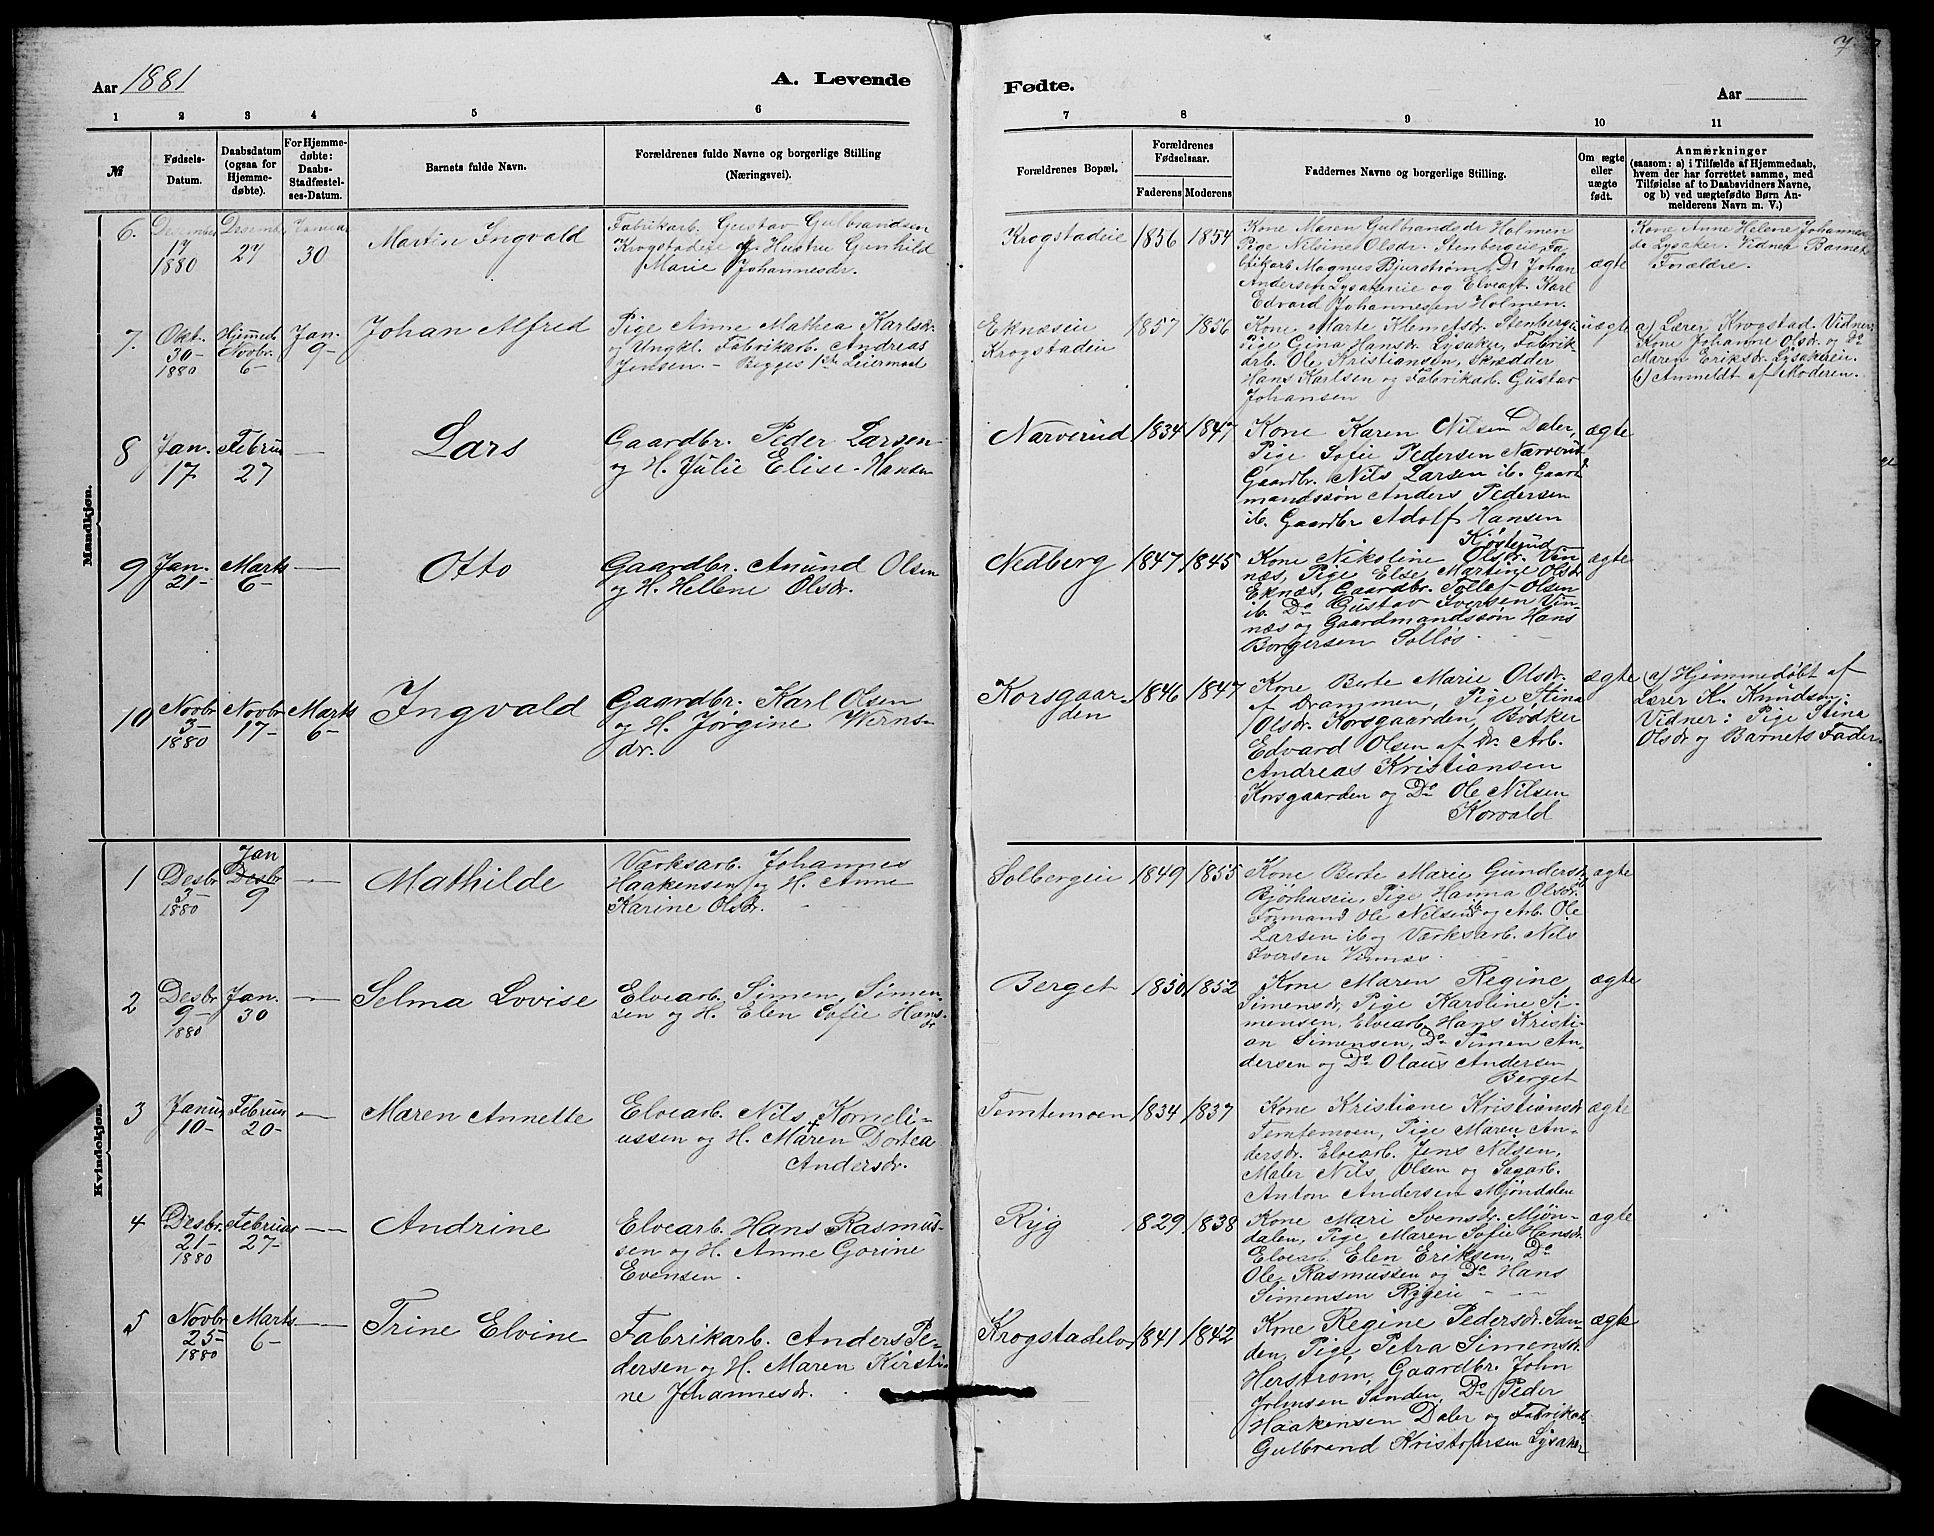 7
Aar 1881
A. Levende
Fødte.
Aar
1 2 3 4 5 6 7 8 9 10 11
№
Fødsels-
Datum.
Daabsdatum
(ogsaa for
Hjemme-
døbte).
For Hjemme-
døbte:
Daabs-
Stadfæstel-
ses-Datum.
Barnets fulde Navn.
Forældrenes fulde Navne og borgerlige Stilling
(Næringsvei).
Forældrenes Bopæl.
Forældrenes
Fødselsaar.
Faderens Moderens
Faddernes Navne og borgerlige Stilling.
Om ægte
eller
uægte
født.
Anmærkninger
(saasom: a) i Tilfælde af Hjemmedaab,
hvem der har forrettet samme, med
Tilføielse af to Daabsvidners Navne,
og b) ved uægtefødte Børn An-
melderens Navn m. V.)
Mandkjøn.
6.
December
17
1880
Desemb.
27
Januar
30
Martin Ingvald
Fabrikarb. Gustav Gulbrandsen
Krogstadeie og Hustru Gunhild
Marie Johannesdr.
Krogstadeie
1856 1854
Kone Maren Gulbrandsdr Holmen
Pige Nilsine Olsdr. Stenbergeie, Fa-
brikarb Magnus Bjurstrøm, Do Johan
Andersen Lysakereie og Elvearb. Karl
Edvard Johannesen Holmen.
ægte
Kone Anne Helene Johannes-
dr Lysaker. Vidner Barnets
Forældre.
7
Okt.
30-
1880
Hjemmed.
Novbr.
6-
Jan.
9-
Johan Alfred
Pige Anne Mathea Karlsdr.
og Ungkl. Fabrikarb. Andreas
Jensen. - Begges 1ste Leiermaal
Eknæseie
Krogstadeie
1857 1856
Kone Marte Klemetsdr. Stenbergei
Pige Gina Hansdr. Lysaker, Fabrik-
arb. Ole Kristiansen, Skrædder
Hans Karlsen og Fabrikarb. Gustav
Johansen
uægte
a) Lærer Krogstad. Vidner
Kone Johanne Olsdr. og Do
Maren Eriksdr. Lysakereie.
b) Anmeldt af Moderen.
8
Jan.
17
Februar
27
Lars
Gaardbr. Peder Larsen
og H. Julie Elise Hansen
Narverud
1834 1847
Kone Karen Nilsen Daler,
Pige Sofie Pedersen Narverud
Gaardbr. Nils Larsen ib. Gaard-
mandssøn Anders Pedersen
ib. Gaardbr Adolf Hansen
Kjøsterud
ægte
9
Jan.
21-
Marts
6-
Otto
Gaardbr. Amund Olsen
og H. Hellene Olsdr.
Nedberg
1847 1845
Kone Nikoline Olsdr. Vin-
næs, Pige Else Martine Olsdr
Eknæs, Gaardbr. Tollef Olsen
ib. Do Gustav Iversen Vin-
næs og Gaardmandssøn Hans
Borgersen Solløs
ægte
10
Novbr
3-
1880
Novbr
17-
Marts
6-
Ingvald
Gaardbr. Karl Olsen
og H. Jørgine Werns-
dr.
Korsgaar-
den
1846 1847
Kone Berte Marie Olsdr.
af Drammen, Pige Stina
Olsdr. Korsgaarden, Bødker
Edvard Olsen af Dr. Arb.
Andreas Kristiansen
Korsgaarden og Do Ole Nilsen
Korvald
ægte
a) Hjemmedøbt af
Lærer K. Knudsen:
Vidner: Pige Stina
Olsdr og Barnets Fader.
Kvindekjøn.
1
Desbr
3-
1880
Jan
Desbr
9
Mathilde
Værksarb. Johannes
Haakensen og H. Anne
Karine Olsdr.
Solbergeie
1849 1855
Kone Berte Marie Gundersdr
Bjørhuseie, Pige Hanna Olsdr. ib
Formand Ole Nilsen ib og Arb. Ole
Larsen ib og Værksarb. Nils
Iversen Vinnæs
ægte
2
Desbr
9-
1880
Jan.
30
Selma Lovise
Elvearb. Simen Simen-
sen og H. Elen Sofie Hans-
dr
Berget
1850 1852
Kone Maren Regine
Simensdr, Pige Karoline Si-
mensen, Elvearb Hans Kristi-
an Simensen, Do Simen An-
dersen og Do Olaus Andersen
Berget
ægte
3
Januar
10-
Februar
20-
Maren Annette
Elvearb. Nils Korneli-
ussen og H. Maren Dortea
Andersdr.
Temtemoen
1834 1837
Kone Kristiane Kristiansdr
Temtemoen, Pige Maren An-
dersdr. Elvearb. Jens Nilsen,
Maler Nils Olsen og Sagarb.
Anton Andersen Mjøndalen
ægte
4
Desbr
21-
1880
Februar
27-
Andrine
Elvearb. Hans Rasmus-
sen og H. Anne Gorine
Evensen.
Ryg
1829 1838
Kone Mari Svensdr. Mjøn-
dalen, Pige Maren Sofie Hansdr.
Elvearb. Elen Eriksen, Do
Ole Rasmussen og Do Hans
Simensen Rygeie
ægte
5
Novbr
25-
1880
Marts
6-
Trine Elvine
Fabrikarb. Anders Pe-
dersen og H. Maren Kirsti-
ne Johannesdr.
Krogstadelv
1841 1842
Kone Regine Pedersdr. San-
den, Pige Petra Simensdr.
Herstrøm, Gaardbr. John
Johnsen Sanden, Do Peder
Haakensen Daler og Fabrikarb
Gulbrand Kristofersen Lysaker
ægte